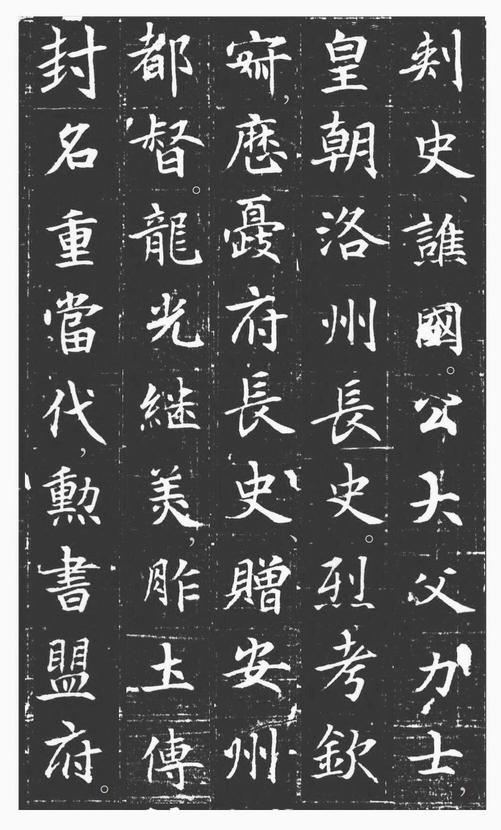 刾史、譙國。公大父力士,
皇朝洛州長史。烈考欽
寂,歴夔府長史、贈安州
都督。龍光継美,胙土傳
封名重當代,勲書盟府。